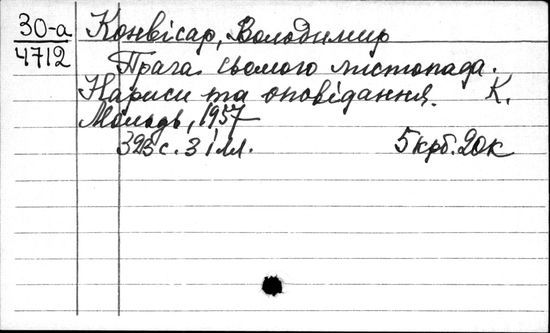 30-а Конвісар, Володимир
4712
Прага сьомого листопада.
Нариси та оповідання. К.
Молодь, 1957
323 с. з ілл. 5 крб. 20 к